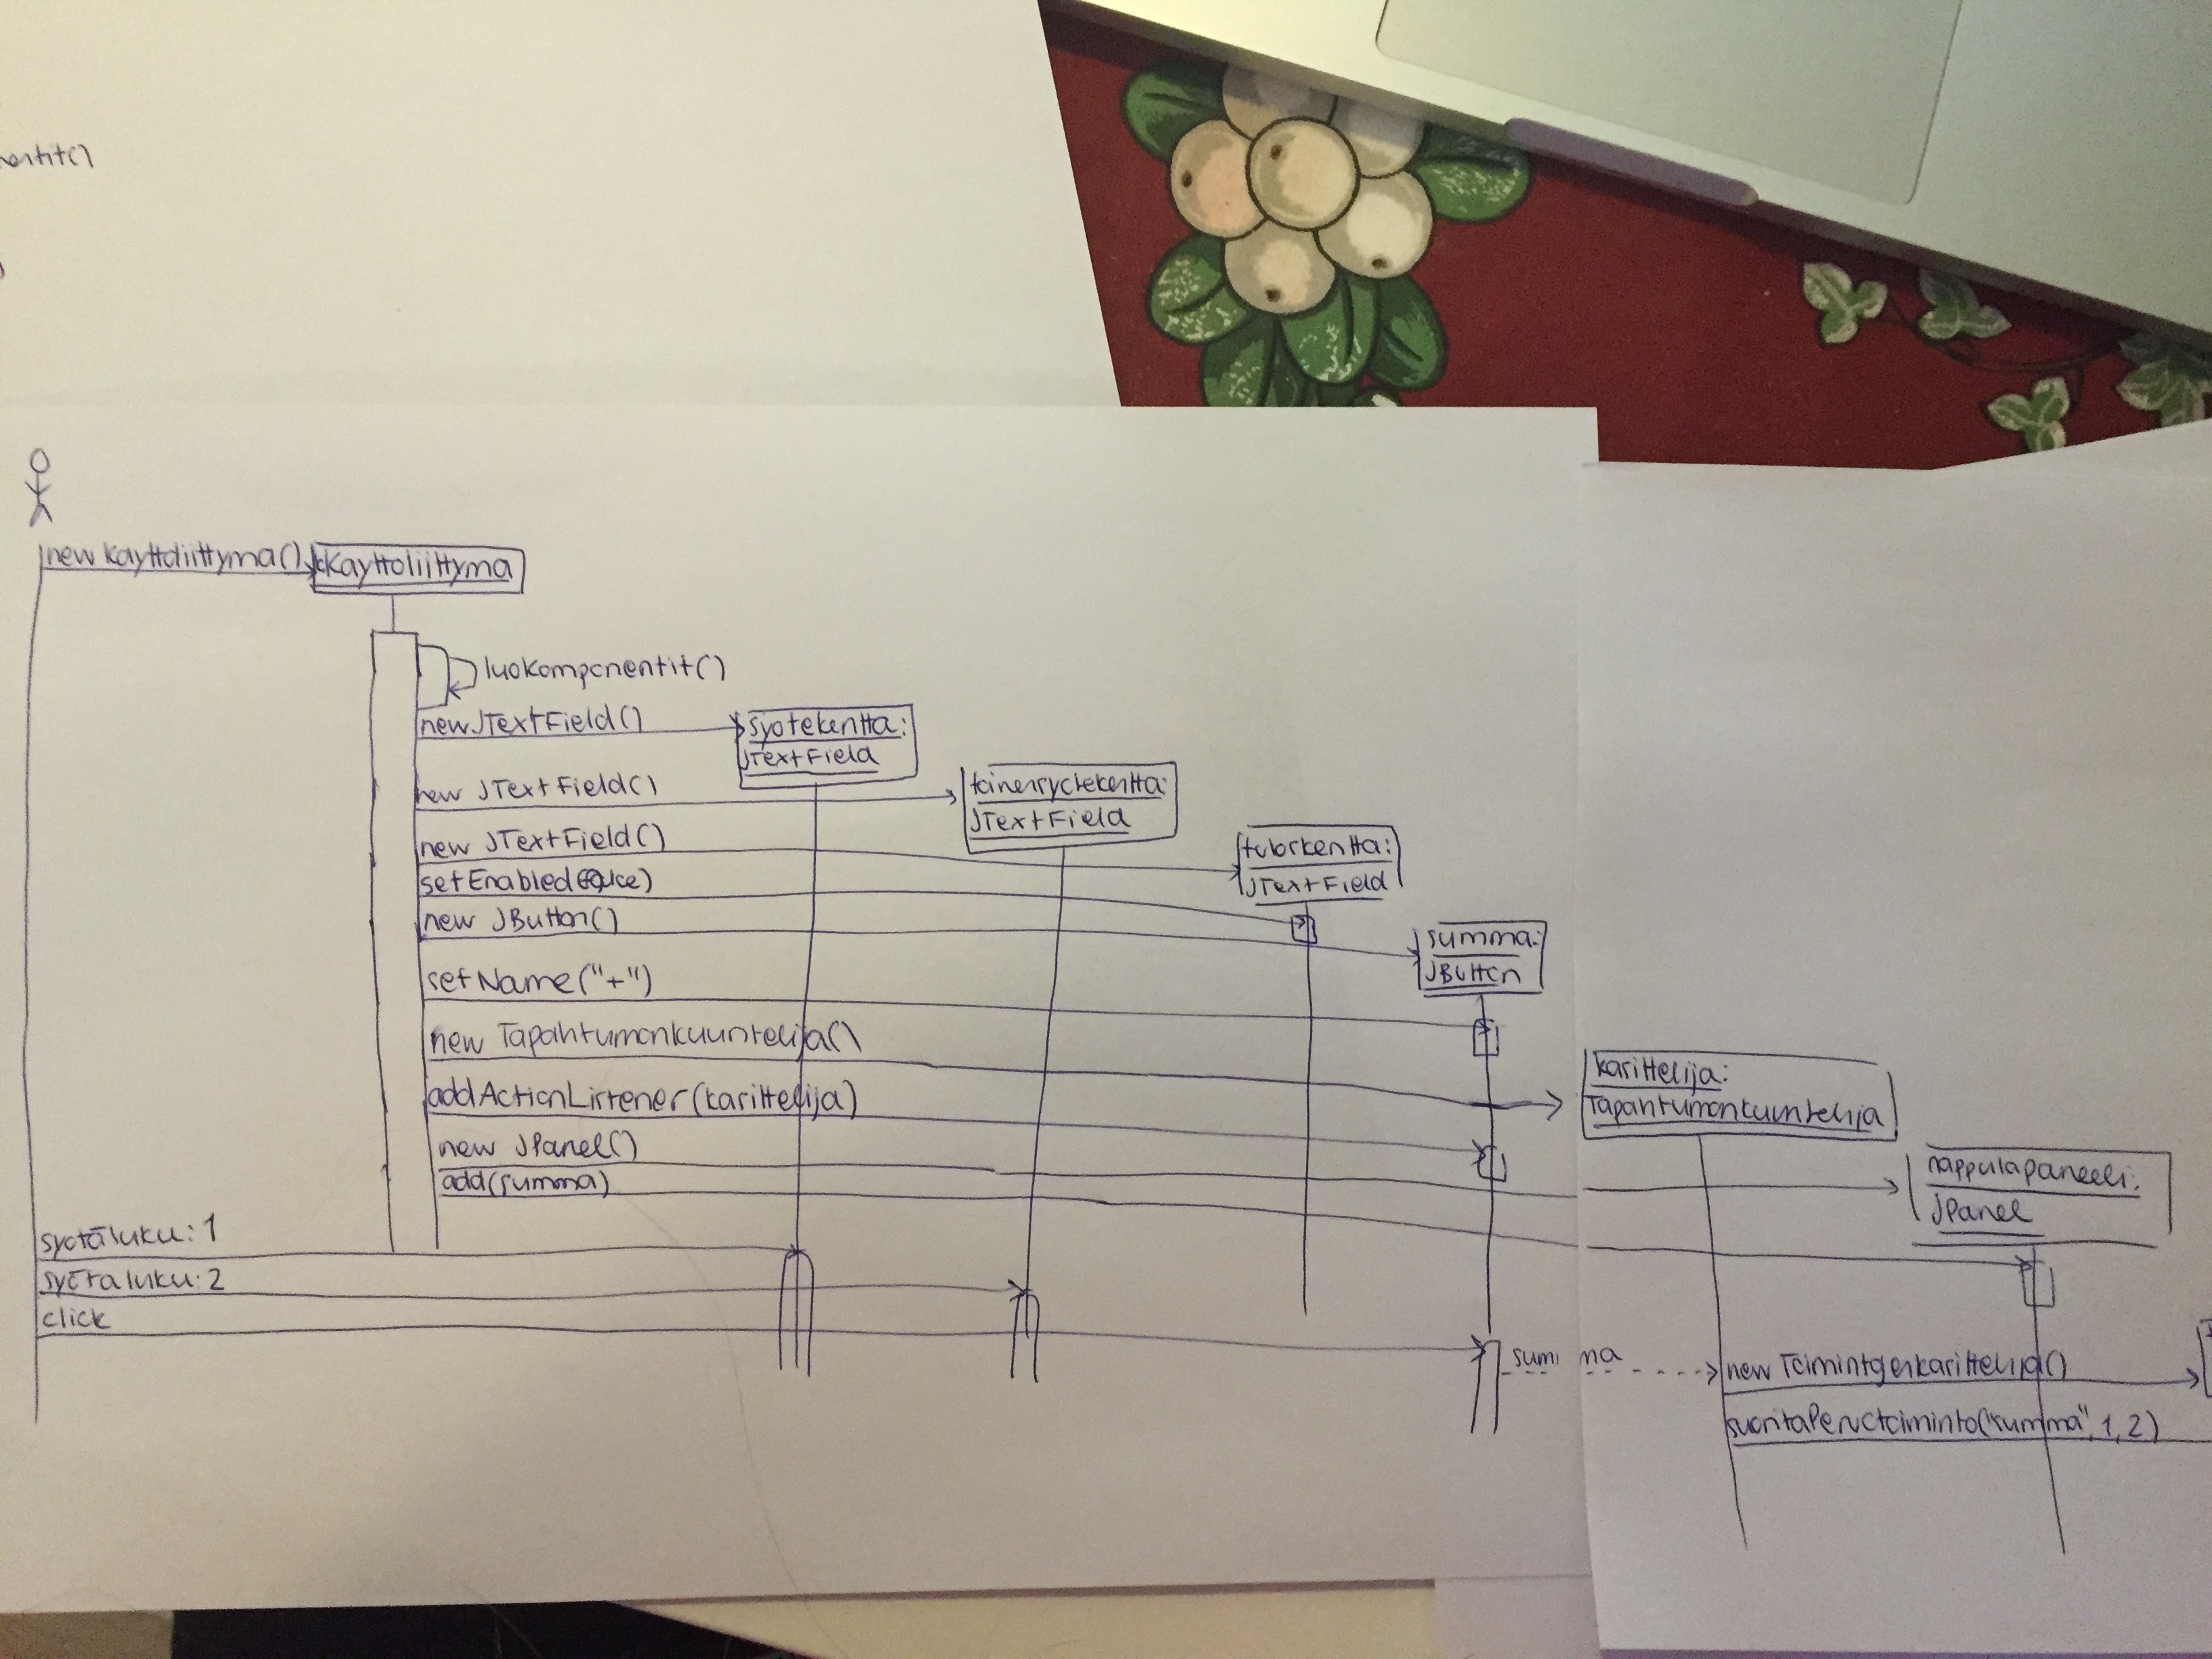 new kayttoliittyma()
kayttoliittyma
luokomponentit()
new JTextField()
syotekentta:
JTextField
new JTextField()
toinensyotekentta:
JTextField
new JTextField()
tuloskentta:
JTextField
setEnabled(
new JButton()
summa:
JButton
setName("+")
new Tapahtumankuuntelija()
karittelija:
Tapahtumankuuntelija
addActionListener(karittelija)
new JPanel()
nappulapaneeli:
JPanel
add(summa)
syötäluku: 1
syötäluku: 2
click
summa
new Toimintojenkarittelija()
suoritaPerustoiminto("summa", 1, 2)